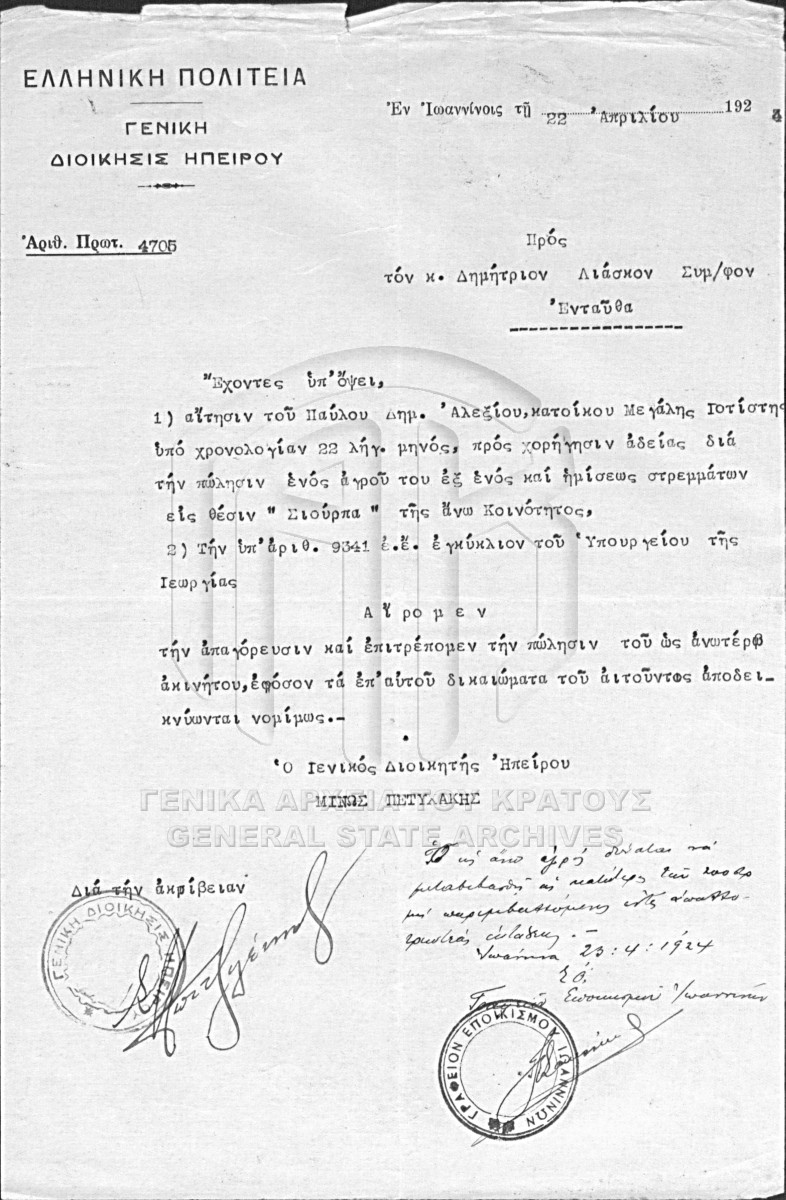 ΕΛΛΗΝΙΚΗ ΠΟΛΙΤΕΙΑ
ΓΕΝΙΚΗ
ΔΙΟΙΚΗΣΙΣ ΗΠΕΙΡΟΥ
Ἐν Ἰωαννίνοις τῇ 22 Ἀπριλίου 1924
Ἀριθ. Πρωτ. 4705
Πρός
τόν κ. Δημήτριον Λιάσκον Συμ/φον
Ἐνταῦθα
Ἔχοντες ὑπ'ὄψει,
1) αἴτησιν τοῦ Παύλου Δημ. Ἀλεξίου,κατοίκου Μεγάλης Γοτίστης
ὑπό χρονολογίαν 22 λήγ. μηνός, πρός χορήγησιν ἀδείας διά
τήν πώλησιν ἑνός ἀγροῦ του ἐξ ἑνός καί ἡμίσεως στρεμμάτων
εἰς θέσιν " Σιούρπα " τῆς ἄνω Κοινότητος,
2) Τήν ὑπ'ἀριθ. 9341 ἐ.ἔ. ἐγκύκλιον τοῦ Ὑπουργείου τῆς
Γεωργίας
Α ἴ ρ ο μ ε ν
τήν ἀπαγόρευσιν καί ἐπιτρέπομεν τήν πώλησιν τοῦ ὡς ἀνωτέρω
ἀκινήτου,ἐφόσον τά ἐπ'αὐτοῦ δικαιώματα τοῦ αἰτοῦντος ἀποδει-
κνύωνται νομίμως.-
Ὁ Γενικός Διοικητής Ἠπείρου
ΜΙΝΩΣ ΠΕΤΥΧΑΚΗΣ
ΓΕΝΙΚΑ ΑΡΧΕΙΑ ΤΟΥ ΚΡΑΤΟΥΣ
GENERAL STATE ARCHIVES
Διά τήν ἀκρίβειαν
ΓΕΝΙΚΗ ΔΙΟΙΚΗΣΙΣ ΗΠΕΙΡΟΥ
Ὁ ὡς ἄνω ἀγρός δύναται νά
23:4:1924
Ἐποικισμοῦ Ἰωαννίνων
ΓΡΑΦΕΙΟΝ ΕΠΟΙΚΙΣΜΟΥ ΙΩΑΝΝΙΝΩΝ